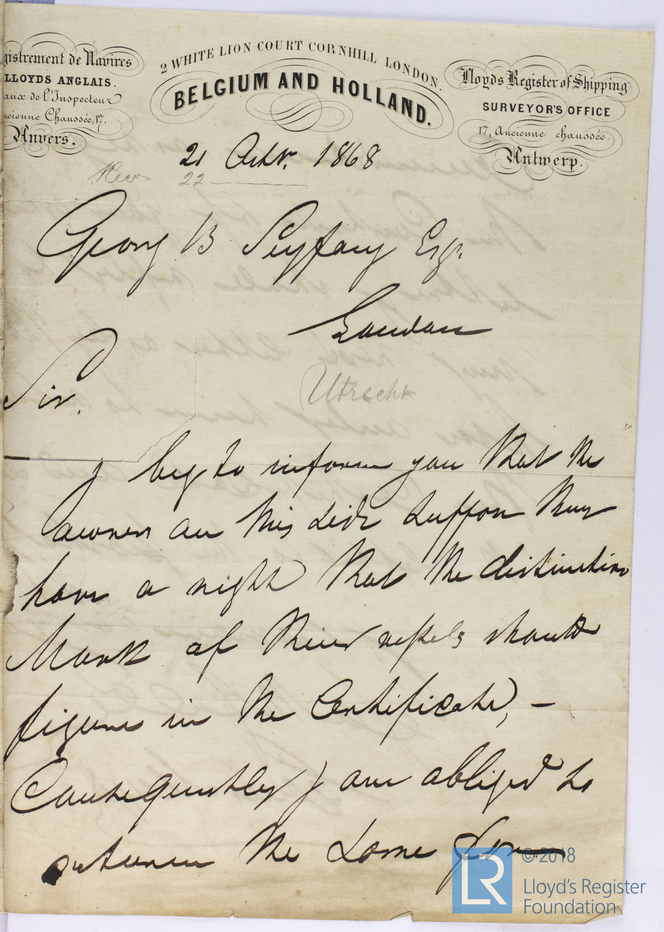 gistrement de Navires
LLOYDS ANGLAIS.
aux de l'Inspecteur
cienne Chaussée, 17.
Anvers.
2 WHITE LION COURT CORNHILL LONDON.
BELGIUM AND HOLLAND.
Lloyds Register of Shipping
SURVEYOR'S OFFICE
17, Ancienne chaussée.
Antwerp.
21 Octbr. 1868
22
Georg B Seyfang Esqr.
London
Utrecht
Sir.
I beg to inform you that the
owners on this side suppose they
have a right that the distinctive
Mark of their vessels should
figure in the Certificate, –
Consequently I am obliged to
return the same from
© 2018
LR
Lloyd's Register
Foundation